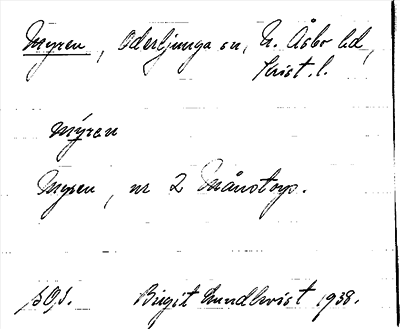 Myren, Oderljunga sn, N. Åsbo hd,
Krist. l.
mýren
Myren, nr 2 Månstorp.
Birgit Lundkvist 1938.